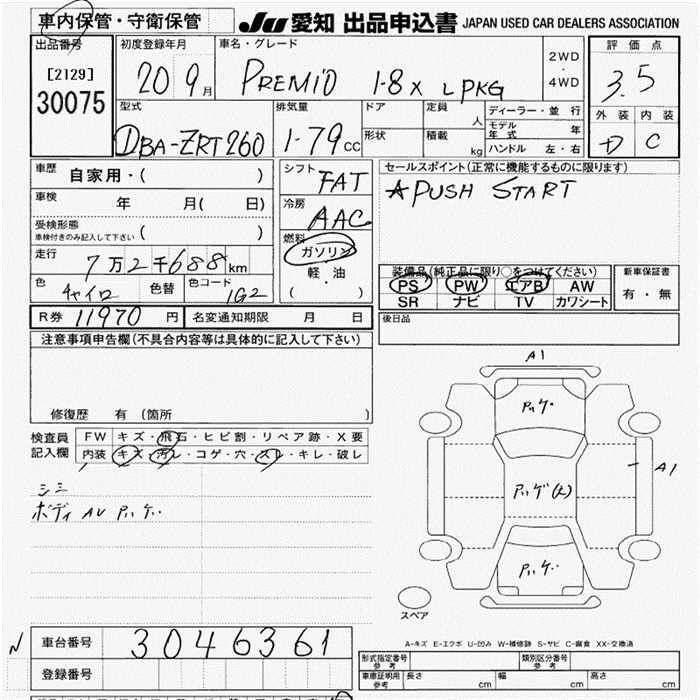 車内保管・守衛保管
JU 愛知 出品申込書 JAPAN USED CAR DEALERS ASSOCIATION
出品番号
[2129]
30075
初度登録年月
20 9月
車名・グレード
PREMIO 1-8X LPKG
2WD
・
4WD
評価点
3.5
外装 内装
D C
型式
DBA-ZRT260
排気量
1-79cc
ドア
形状
定員 人
積載 kg
ディーラー・並行
モデル年式 年
ハンドル 左・右
車歴 自家用・( )
車検 年 月( 日)
受検形態
車検付きのみ記入して下さい ( )
走行 7万2千688km
色 チャイロ 色替 色コード 1G2
シフト FAT
冷房 AAC
燃料
ガソリン
軽・油
( )
セールスポイント(正常に機能するものに限ります)
☆PUSH START
装備品(純正品に限り○をつけてください)
PS PW エアB AW
SR ナビ TV カワシート
新車保証書
有・無
R券 11970 円 名変通知期限 月 日
後日品
注意事項申告欄(不具合内容等は具体的に記入して下さい)
修復歴 有 (箇所 )
検査員
記入欄
FW キズ・飛石・ヒビ割・リペア跡・X要
内装 キズ・汚レ・コゲ・穴・スレ・キレ・破レ
シミ
A1
A1
スペア
A-キズ E-エクボ U-凹み W-補修跡 S-サビ C-腐食 XX-交換済
N
車台番号 3046361
登録番号
形式指定番号
参考
類別区分番号
参考
車庫証明用
参考
長さ cm 幅 cm 高さ cm